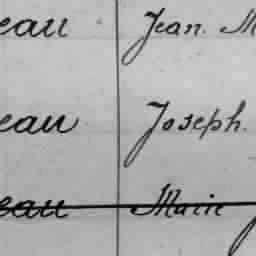 eau Jean. M
eau Joseph.
eau Marie